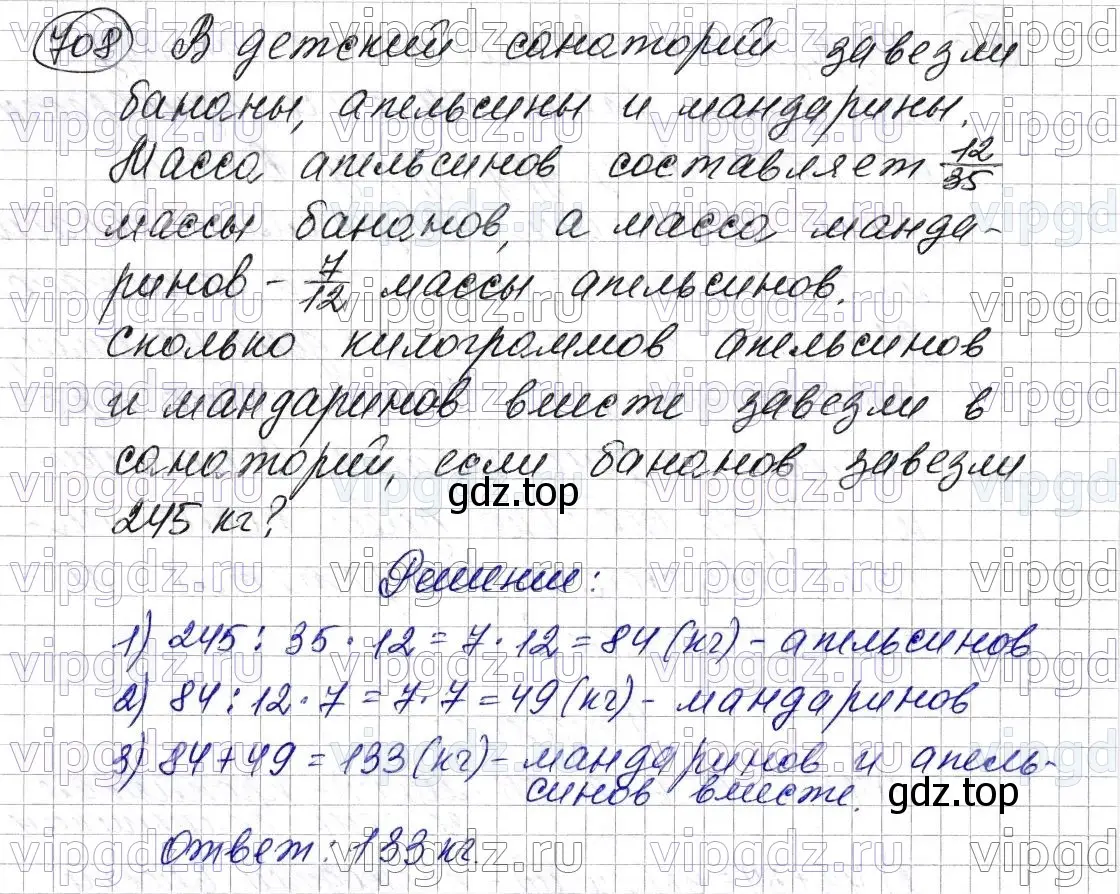 708 В детский санаторий завезли
бананы, апельсины и мандарины.
Масса апельсинов составляет 12/35
массы бананов, а масса манда-
ринов - 7/12 массы апельсинов.
Сколько килограммов апельсинов
и мандаринов вместе завезли в
санаторий, если бананов завезли
gdz.top
245 кг?
Решение:
1) 245 : 35 · 12 = 7 · 12 = 84 (кг) - апельсинов
2) 84 : 12 · 7 = 7 · 7 = 49 (кг) - мандаринов
3) 84 + 49 = 133 (кг) - мандаринов и апель-
синов вместе.
gdz.top
Ответ: 133 кг.
vipgdz.ru